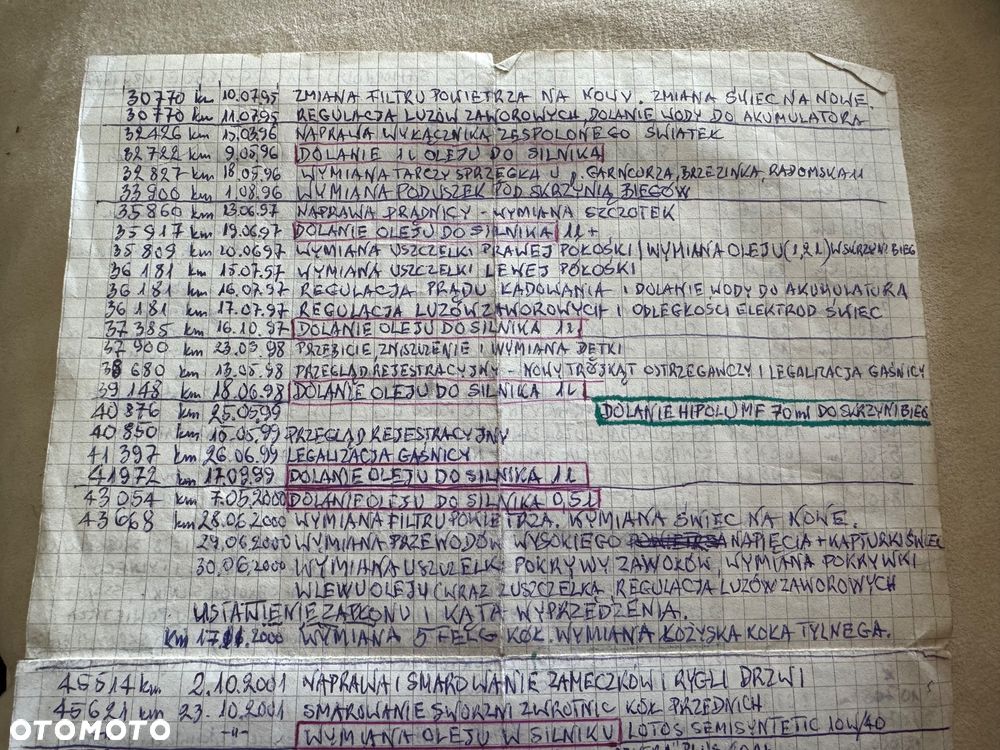 30770 km 10.07.95 ZMIANA FILTRU POWIETRZA NA NOWY. ZMIANA ŚWIEC NA NOWE.
30770 km 11.07.95 REGULACJA LUZÓW ZAWOROWYCH, DOLANIE WODY DO AKUMULATORA
32426 km 15.03.96 NAPRAWA WYŁĄCZNIKA ZESPOLONEGO ŚWIATEŁ
32722 km 9.05.96 DOLANIE 1L OLEJU DO SILNIKA
32827 km 18.05.96 WYMIANA TARCZY SPRZĘGŁA U p. GARNCORZA, BRZEZINKA, RADOMSKA 11
33900 km 1.08.96 WYMIANA PODUSZEK POD SKRZYNIĄ BIEGÓW
35860 km 13.06.97 NAPRAWA PRĄDNICY - WYMIANA SZCZOTEK
35917 km 19.06.97 DOLANIE OLEJU DO SILNIKA 1L +
35809 km 20.06.97 WYMIANA USZCZELKI PRAWEJ PÓŁOŚKI / WYMIANA OLEJU (1,2L) W SKRZYNI BIEG
36181 km 15.07.97 WYMIANA USZCZELKI LEWEJ PÓŁOŚKI
36181 km 16.07.97 REGULACJA PRĄDU ŁADOWANIA I DOLANIE WODY DO AKUMULATORA
36181 km 17.07.97 REGULACJA LUZÓW ZAWOROWYCH I ODLEGŁOŚCI ELEKTROD ŚWIEC
37385 km 16.10.97 DOLANIE OLEJU DO SILNIKA 1L
37900 km 23.03.98 PRZEBICIE, ZNISZCZENIE I WYMIANA DĘTKI
38680 km 13.05.98 PRZEGLĄD REJESTRACYJNY - NOWY TRÓJKĄT OSTRZEGAWCZY I LEGALIZACJA GAŚNICY
39148 km 18.06.98 DOLANIE OLEJU DO SILNIKA 1L
40876 km 25.05.99 DOLANIE HIPOLU MF 70 ml DO SKRZYNI BIEG
40850 km 15.05.99 PRZEGLĄD REJESTRACYJNY
41397 km 26.06.99 LEGALIZACJA GAŚNICY
41972 km 17.09.99 DOLANIE OLEJU DO SILNIKA 1L
43054 km 7.05.2000 DOLANIE OLEJU DO SILNIKA 0,5L
43668 km 28.06.2000 WYMIANA FILTRU POWIETRZA. WYMIANA ŚWIEC NA NOWE.
29.06.2000 WYMIANA PRZEWODÓW WYSOKIEGO NAPIĘCIA + KAPTURKI ŚWIEC
30.06.2000 WYMIANA USZCZELKI POKRYWY ZAWORÓW, WYMIANA POKRYWKI
WLEWU OLEJU (WRAZ Z USZCZELKĄ, REGULACJA LUZÓW ZAWOROWYCH
USTAWIENIE ZAPŁONU I KĄTA WYPRZEDZENIA.
km 2000 WYMIANA 5 FELG KÓŁ. WYMIANA ŁOŻYSKA KOŁA TYLNEGO.
45514 km 2.10.2001 NAPRAWA I SMAROWANIE ZAMECZKÓW I RYGLI DRZWI
45621 km 23.10.2001 SMAROWANIE SWORZNI ZWROTNIC KÓŁ PRZEDNICH
-"- WYMIANA OLEJU W SILNIKU LOTOS SEMISYNTETIC 10W/40
OTOMOTO